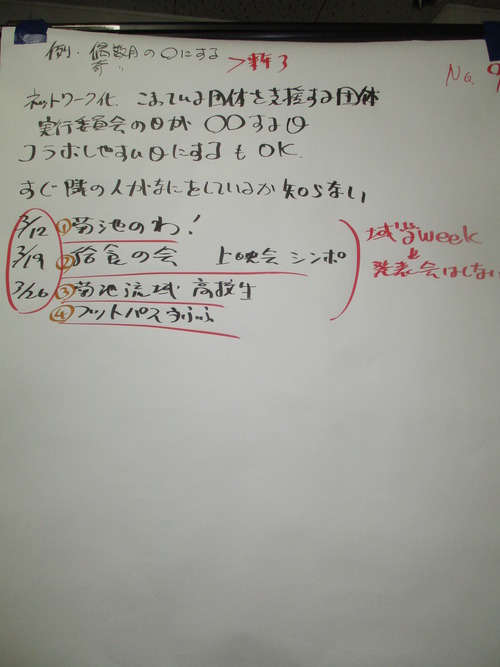 例. 偶数月の〇にする
奇 〃
No. 9
ネットワーク化. こまっている団体を支援する団体
実行委員会の日が 〇〇する日
コラボしやすい日にするも OK.
すぐ隣の人がなにをしているか 知らない
3/12 ①菊池のわ!
3/19 ②給食の会 上映会 シンポ
3/26 ③菊池流域 高校生
④フットパス
域学week
発表会はしない